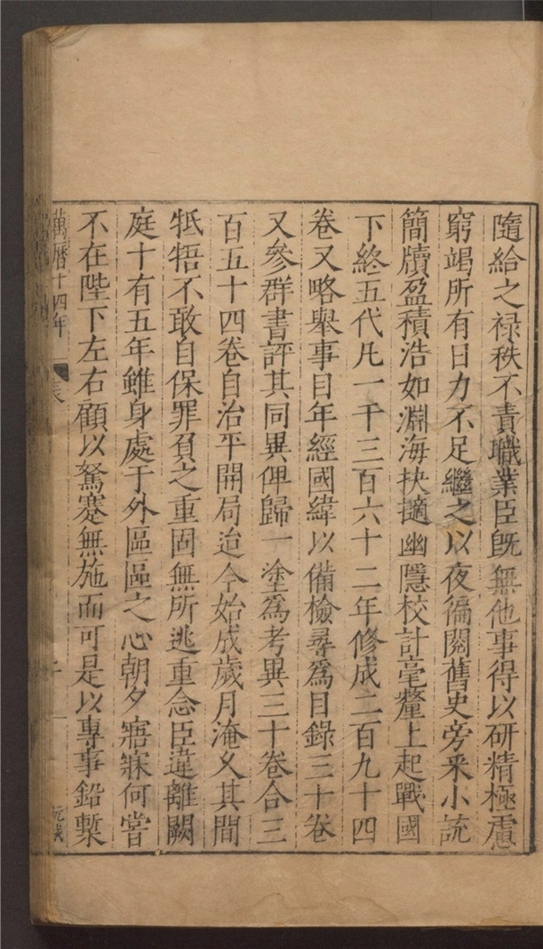 隨給之禄秩不責職業臣旣無他事得以研精極慮
窮竭所有日力不足繼之以夜徧閱舊史旁采小說
簡牘盈積浩如淵海抉擿幽隱校計毫釐上起戰國
下終五代凡一千三百六十二年修成二百九十四
卷又略舉事目年經國緯以備檢尋爲目錄三十卷
又參群書評其同異俾歸一塗爲考異三十卷合三
百五十四卷自治平開局迨今始成歲月淹乆其間
牴牾不敢自保罪負之重固無所逃重念臣違離闕
庭十有五年雖身處于外區區之心朝夕寤寐何嘗
不在陛下左右顧以駑蹇無施而可是以專事鉛槧
萬曆十四年 表